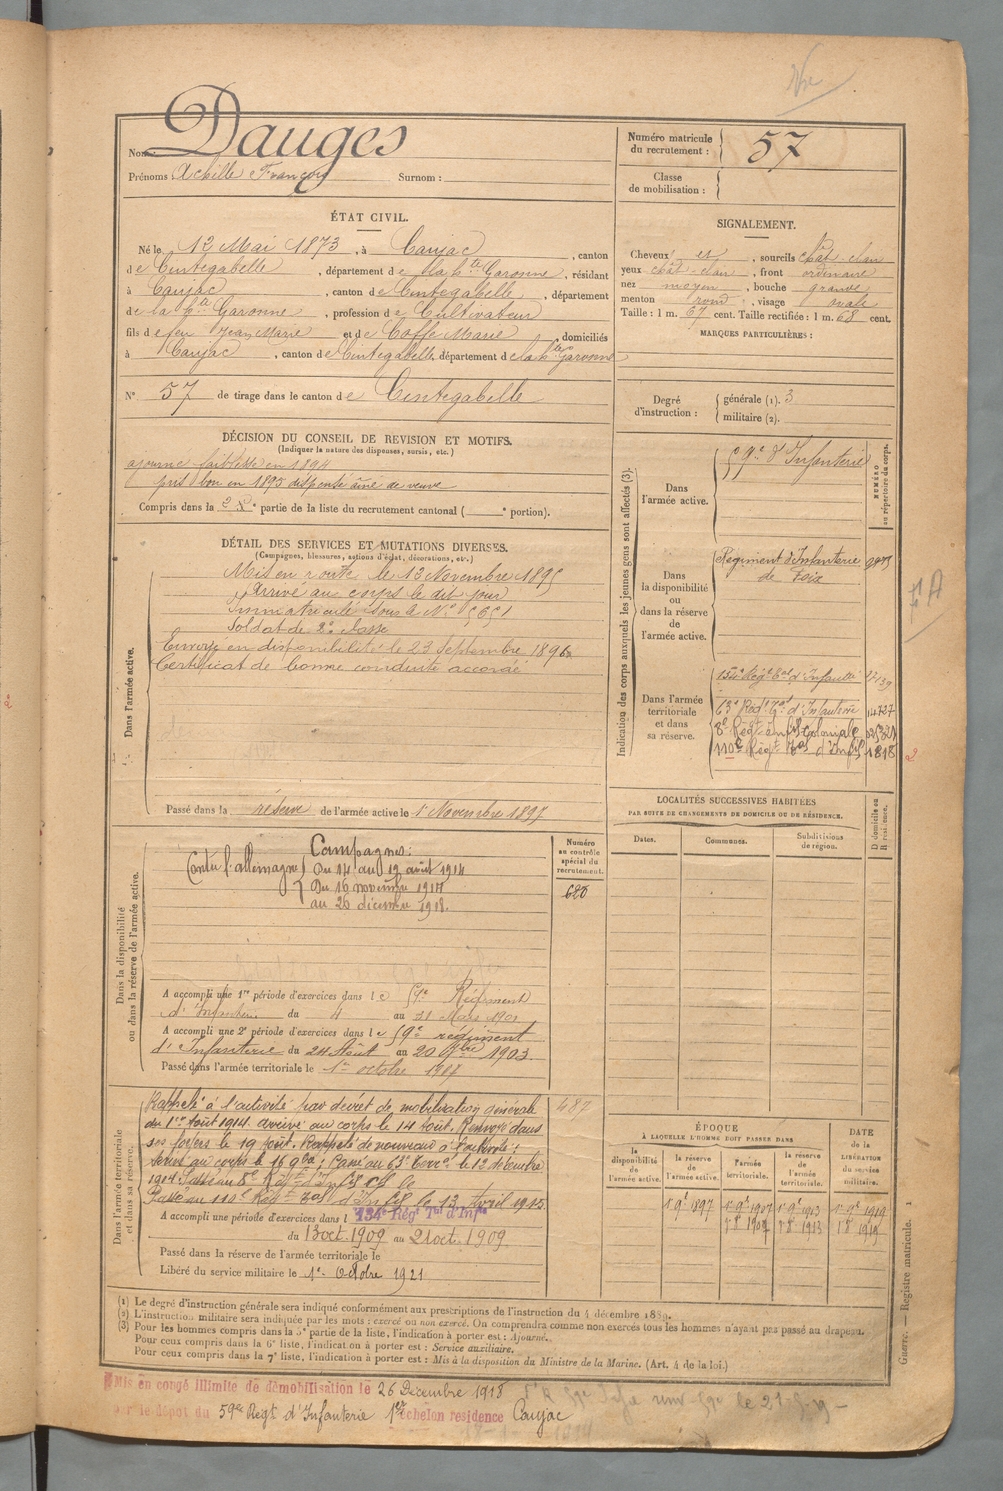 Nom: Dauges
Prénoms: Achille François Surnom:
Numéro matricule du recrutement: 57
Classe de mobilisation:
ÉTAT CIVIL.
Né le 12 Mai 1873, à Caujac, canton
de Cintegabelle, département de la hte Garonne, résidant
à Caujac, canton de Cintegabelle, département
de la hte Garonne, profession de Cultivateur
fils de feu Jean Marie et de Coffe Marie domiciliés
à Caujac, canton de Cintegabelle, département de la hte Garonne
N° 57 de tirage dans le canton de Cintegabelle
SIGNALEMENT.
Cheveux et, sourcils chât-clair
yeux chât-clair, front ordinaire
nez moyen, bouche grande
menton rond, visage ovale
Taille: 1 m. 67 cent. Taille rectifiée: 1 m. 68 cent.
MARQUES PARTICULIÈRES:
Degré d'instruction: générale (1). 3
militaire (2).
DÉCISION DU CONSEIL DE REVISION ET MOTIFS.
(Indiquer la nature des dispenses, sursis, etc.)
ajourné faiblesse en 1894
pris bon en 1895 dispensé aîné de veuve
Compris dans la 2e partie de la liste du recrutement cantonal ( portion).
DÉTAIL DES SERVICES ET MUTATIONS DIVERSES.
(Campagnes, blessures, actions d'éclat, décorations, etc.)
Dans l'armée active.
Mis en route le 13 Novembre 1895
Arrivé au corps le dit jour
Immatriculé sous le N° 5651
Soldat de 2e classe
Envoyé en disponibilité le 23 Septembre 1896
Certificat de bonne conduite accordé
Passé dans la réserve de l'armée active le 1er Novembre 1897
Indication des corps auxquels les jeunes gens sont affectés (3).
NUMÉRO au répertoire du corps.
Dans l'armée active.
59e d'Infanterie
Dans la disponibilité ou dans la réserve de l'armée active.
Régiment d'Infanterie
de Foix
Dans l'armée territoriale et dans sa réserve.
134e Régt Tal d'Infanterie
63e Régt Tal d'Infanterie 14727
8e Régt d'Infie Coloniale
110e Régt Tal d'Infie 1818
2
LOCALITÉS SUCCESSIVES HABITÉES
PAR SUITE DE CHANGEMENTS DE DOMICILE OU DE RÉSIDENCE.
Dates. Communes. Subdivisions de région. D domicile ou R résidence.
Dans la disponibilité ou dans la réserve de l'armée active.
Campagnes:
Contre l'allemagne Du 14 au 19 août 1914
Du 16 novembre 1914
au 26 décembre 1918.
Numéro au contrôle spécial du recrutement.
680
A accompli une 1re période d'exercices dans le 59e Régiment
d'Infanterie du 4 au 31 Mars 1901
A accompli une 2e période d'exercices dans le 59e régiment
d'Infanterie du 24 Août au 20 7bre 1903.
Passé dans l'armée territoriale le 1er octobre 1907
Dans l'armée territoriale et dans sa réserve.
Rappelé à l'activité par décret de mobilisation générale
du 1er août 1914. arrivé au corps le 14 août. Renvoyé dans
ses foyers le 19 août. Rappelé de nouveau à l'activité;
arrivé au corps le 16 9bre; Passé au 63e Terral le 12 décembre
1914 Passé au 8e Régt d'Inf Cle le
Passé au 110e Régt Tal d'Infie le 13 Avril 1915.
487
A accompli une période d'exercices dans l 134e Régt Tal d'Infie
du 13 oct. 1909 au 21 oct. 1909
Passé dans la réserve de l'armée territoriale le
Libéré du service militaire le 1er Octobre 1921
ÉPOQUE
À LAQUELLE L'HOMME DOIT PASSER DANS
la disponibilité de l'armée active. la réserve de l'armée active. l'armée territoriale. la réserve de l'armée territoriale.
DATE de la LIBÉRATION du service militaire.
1er 9e 1897
(1) Le degré d'instruction générale sera indiqué conformément aux prescriptions de l'instruction du 4 décembre 1889.
(2) L'instruction militaire sera indiquée par les mots: exercé ou non exercé. On comprendra comme non exercés tous les hommes n'ayant pas passé au drapeau.
(3) Pour les hommes compris dans la 5e partie de la liste, l'indication à porter est: Ajourné.
Pour ceux compris dans la 6e liste, l'indication à porter est: Service auxiliaire.
Pour ceux compris dans la 7e liste, l'indication à porter est: Mis à la disposition du Ministre de la Marine. (Art. 4 de la loi.)
Guerre. — Registre matricule. 1
Mis en congé illimité de démobilisation le 26 Décembre 1918
par le dépôt du 59e Regt d'Infanterie 1er échelon residence Caujac